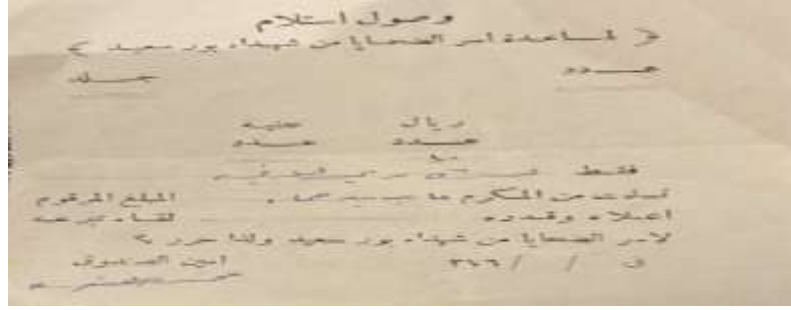 وصول استلام
( لمساعدة اسر الضحايا من شهداء بور سعيد )
عدد جلد
ريال جنيه
عدد عدد
١٠
فقط
تسلمت من المكرم المبلغ المرقوم
اعلاه وقدره لقاء تبرعه
لاسر الضحايا من شهداء بور سعيد ولذا حرر ؟
في / / ٣٧٦
امين الصندوق